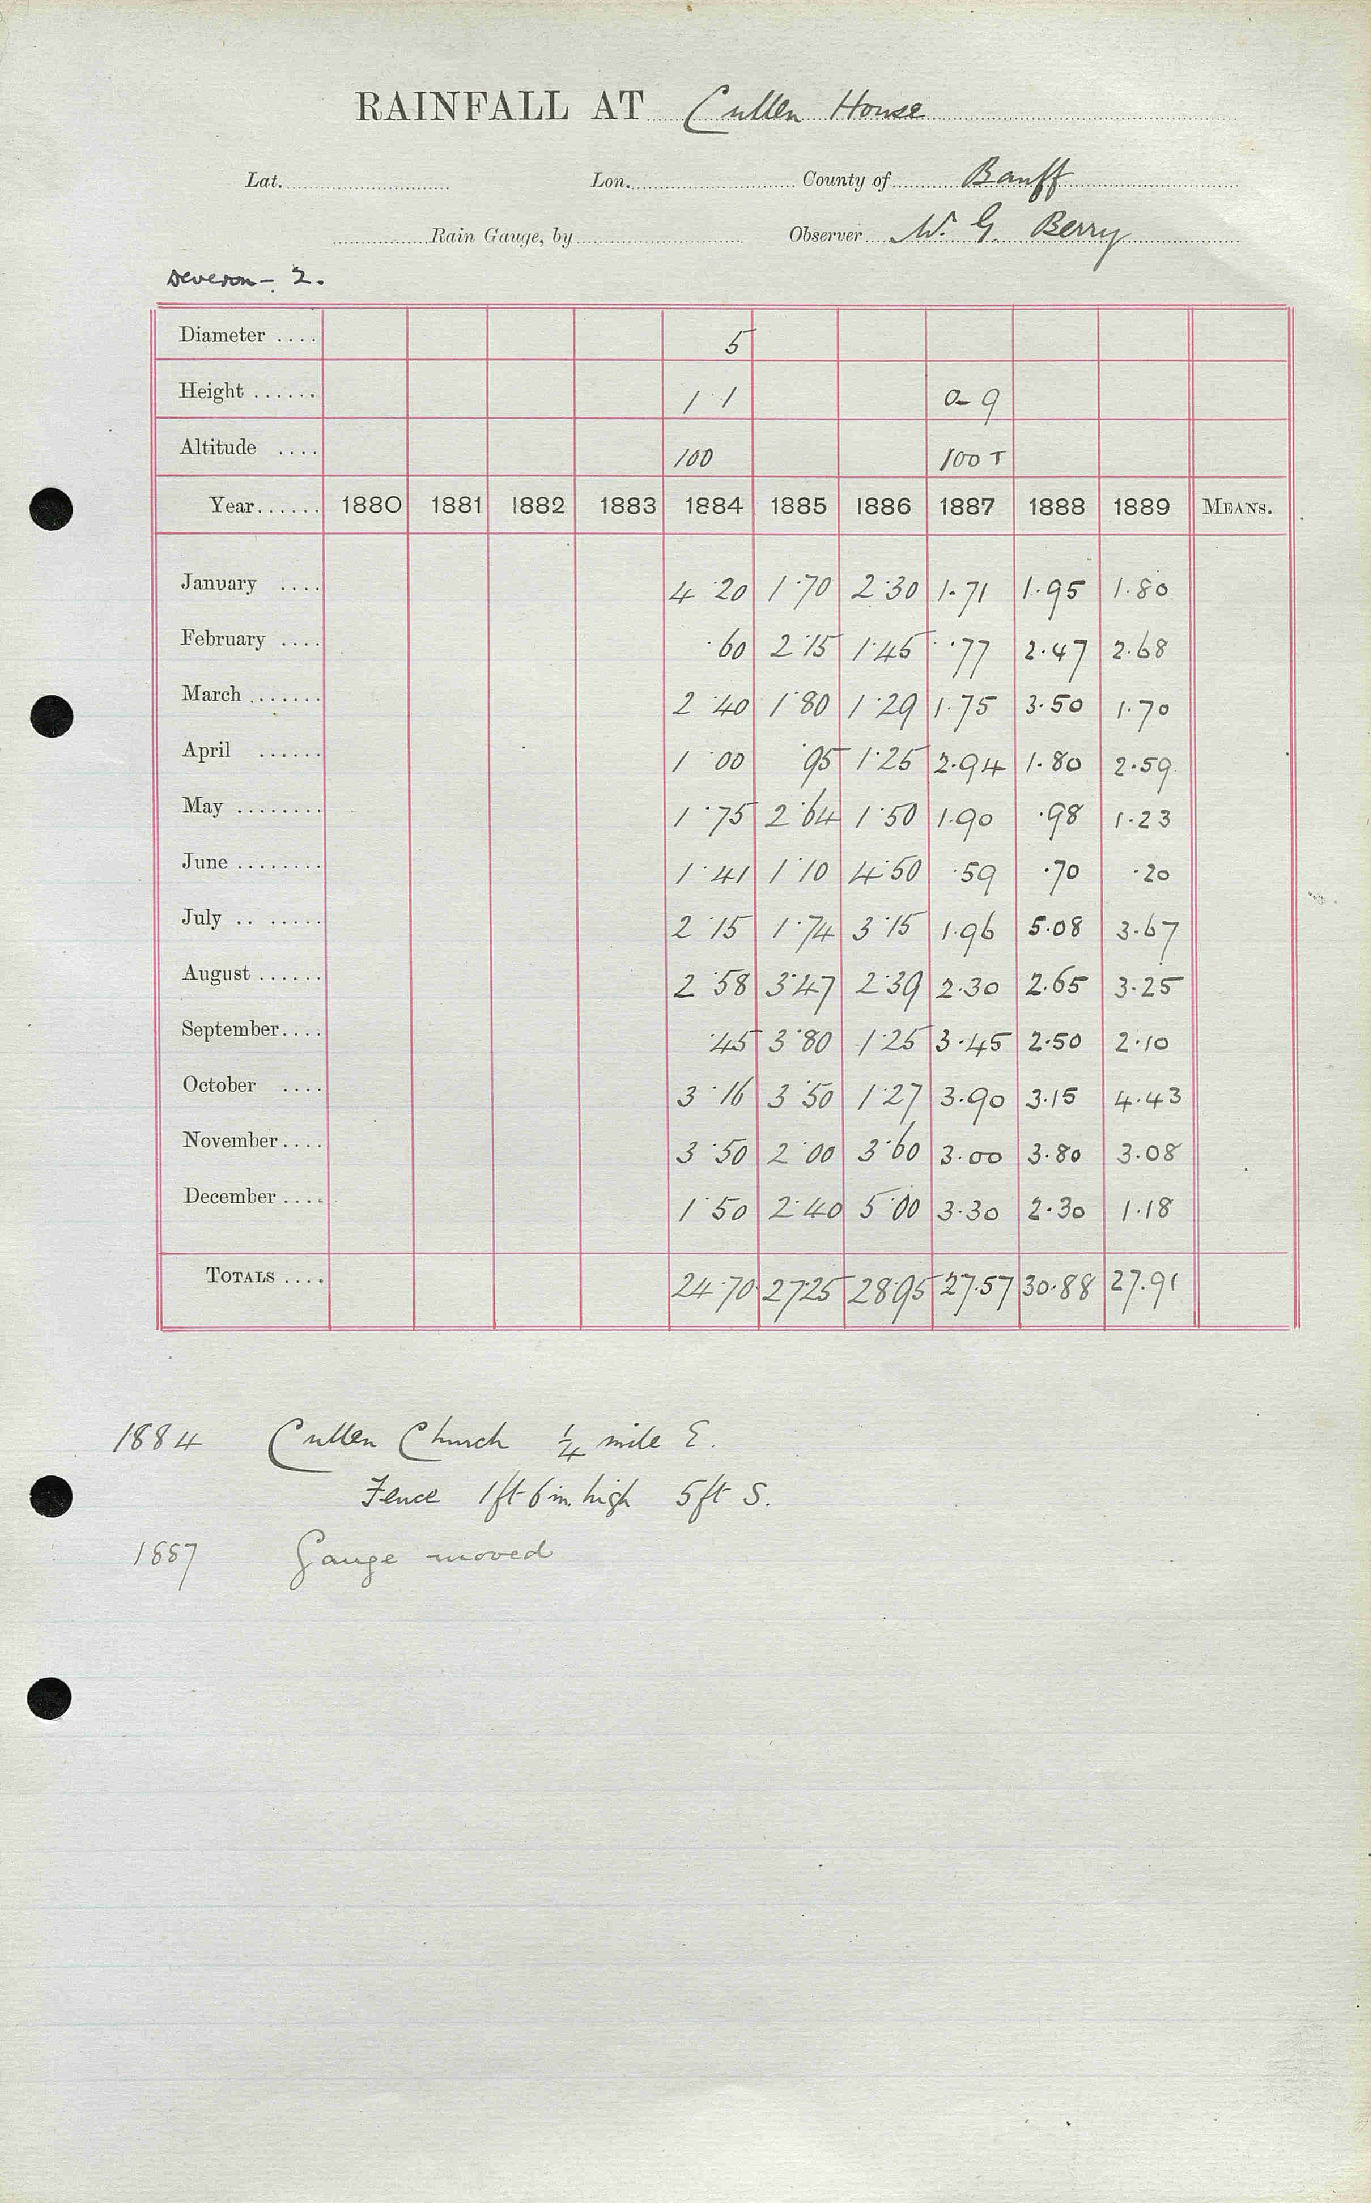 RAINFALL AT Cullen House
Lat. Lon. County of Banff
Rain Gauge, by Observer W. G. Berry
Deveron - 2.
Diameter .... 5
Height ...... 1 1 0-9
Altitude .... 100 100 T
Year...... 1880 1881 1882 1883 1884 1885 1886 1887 1888 1889 MEANS.
January .... 4.20 1.70 2.30 1.71 1.95 1.80
February .... .60 2.15 1.45 .77 2.47 2.68
March ...... 2.40 1.80 1.29 1.75 3.50 1.70
April ...... 1.00 .95 1.25 2.94 1.80 2.59
May ........ 1.75 2.64 1.50 1.90 .98 1.23
June ........ 1.41 1.10 4.50 .59 .70 .20
July .. ..... 2.15 1.74 3.15 1.96 5.08 3.67
August ...... 2.58 3.47 2.39 2.30 2.65 3.25
September.... .45 3.80 1.25 3.45 2.50 2.10
October .... 3.16 3.50 1.27 3.90 3.15 4.43
November.... 3.50 2.00 3.60 3.00 3.80 3.08
December .... 1.50 2.40 5.00 3.30 2.30 1.18
TOTALS .... 24.70 27.25 28.95 27.57 30.88 27.91
1884 Cullen Church 1/4 mile E.
Fence 1ft 6in. high 5ft S.
1887 Gauge moved